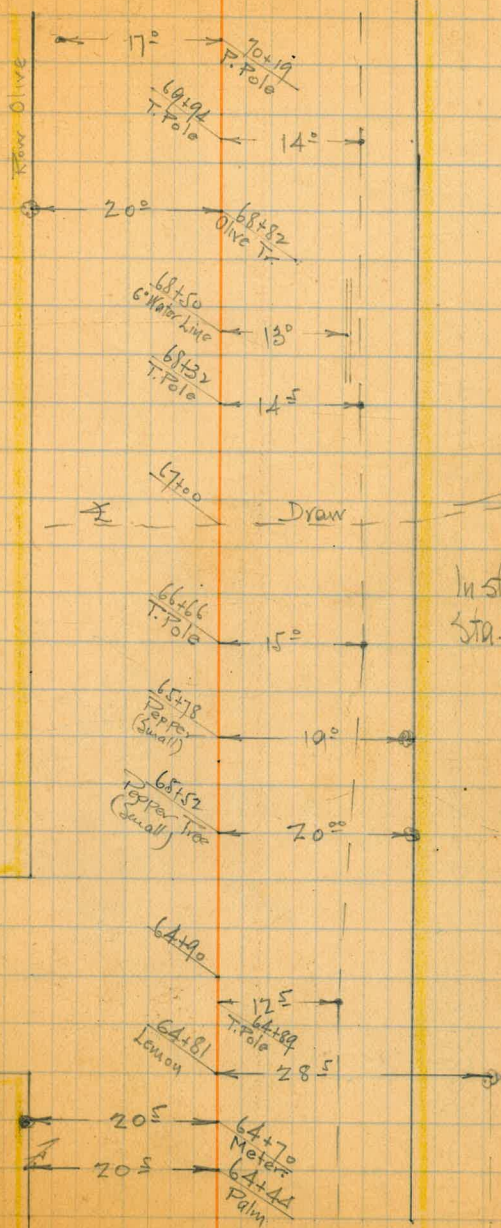 17⁰
70+19
P. Pole
Row Olive
69+94
T. Pole
14⁰
20⁰
68+82
Olive Tr.
68+50
6" Water Line
13⁰
68+32
T. Pole
14⁵
67+00
Draw
66+66
T. Pole
15⁰
65+78
Pepper
(Small)
19⁰
65+52
Pepper Tree
(Small)
20⁰⁰
64+90
12⁵
64+89
T. Pole
64+81
Lemon
28⁵
20⁵
64+70
Meter
20⁵
64+44
Palm
Sta.